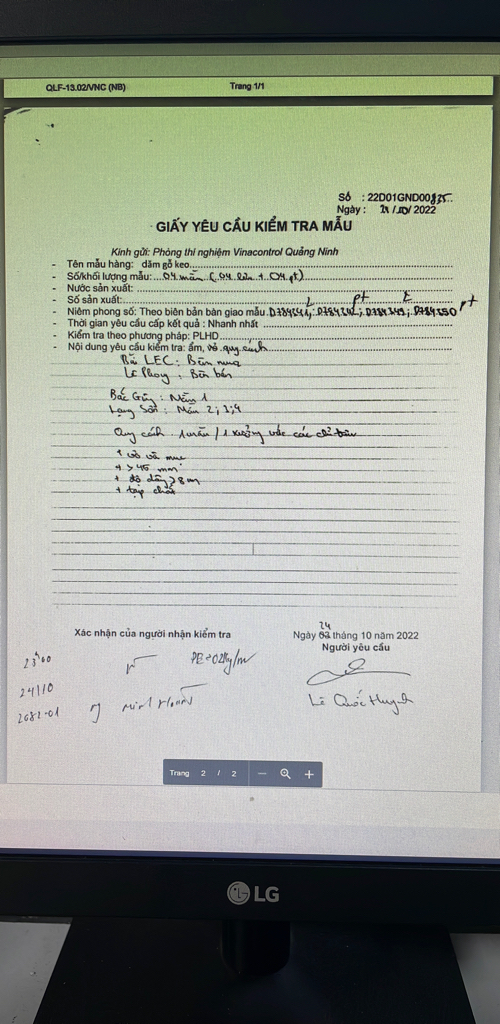 QLF-13.02/VNC (NB) Trang 1/1
Số : 22D01GND00835..
Ngày : /10/ 2022
GIẤY YÊU CẦU KIỂM TRA MẪU
Kính gửi: Phòng thí nghiệm Vinacontrol Quảng Ninh
- Tên mẫu hàng: dăm gỗ keo
- Số/khối lượng mẫu: 04 mẫu (04 + 04 pt)
- Nước sản xuất:
- Số sản xuất:
- Niêm phong số: Theo biên bản bàn giao mẫu
- Thời gian yêu cầu cấp kết quả : Nhanh nhất
- Kiểm tra theo phương pháp: PLHD
- Nội dung yêu cầu kiểm tra: ẩm, quy cách
LEC :
Lê Phong :
Bắc Giang : Mẫu 1
Lạng Sơn : Mẫu 2; 3; 4
Quy cách 1 mẫu / 1 xưởng các chỉ tiêu
+ vỏ và mục
+ > 45 mm
+ độ dày > 8 m
+ tạp chất
Xác nhận của người nhận kiểm tra
24
Ngày 02 tháng 10 năm 2022
Người yêu cầu
23h00
24/10
2682-01
Lê Quốc Huynh
Trang 2 / 2
LG